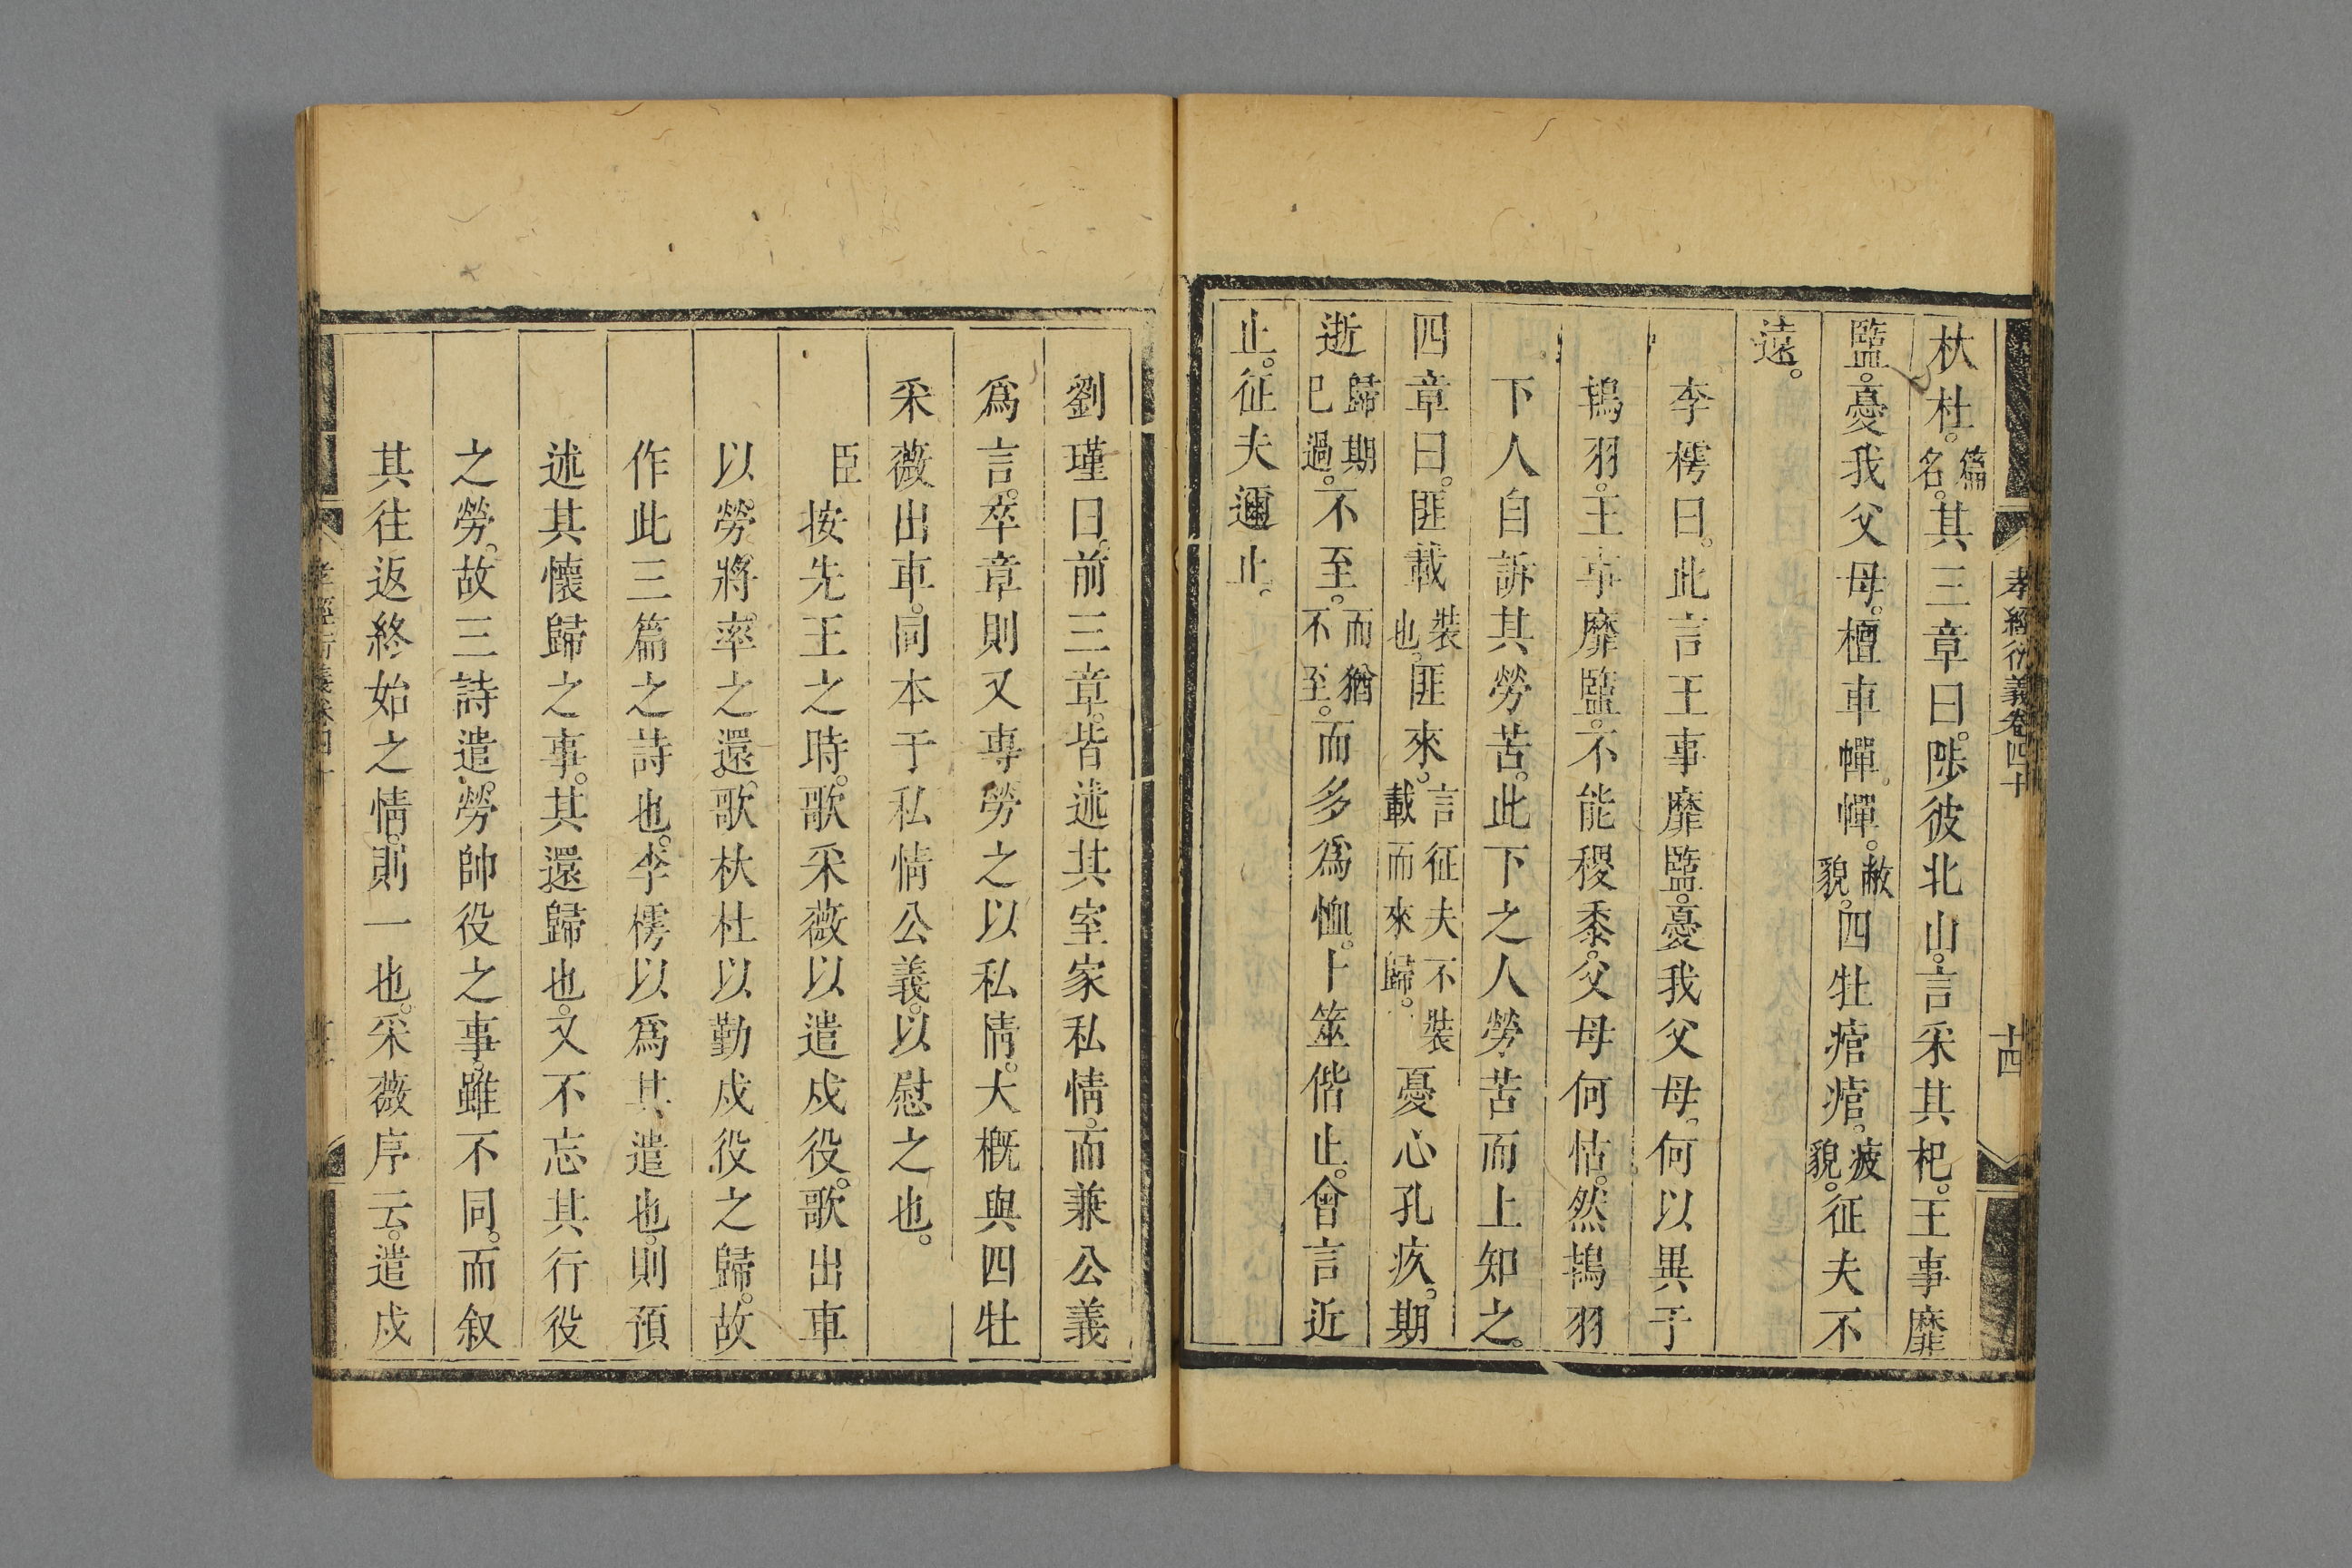 孝經衍義卷四十
十四
杕杜。篇名。其三章曰。陟彼北山。言采其杞。王事靡
盬。憂我父母。檀車幝。幝。敝貌。四牡痯痯。疲貌。征夫不
遠。
李樗曰。此言王事靡盬。憂我父母。何以異于
鴇羽。王事靡盬。不能稷黍。父母何怙。然鴇羽
下人自訴其勞苦。此下之人勞苦而上知之。
四章曰。匪載裝也。匪來。言征夫不裝載而來歸。憂心孔疚。期
逝歸期已過。不至。而猶不至。而多為恤。卜筮偕止。會言近
止。征夫邇止。
劉瑾曰。前三章。皆述其室家私情。而兼公義
爲言。卒章則又專勞之以私情。大槪與四牡
采薇出車。同本于私情公義。以慰之也。
臣按先王之時。歌采薇以遣戍役。歌出車
以勞。將率之還。歌杕杜以勤戍役之歸。故
作此三篇之詩也。李樗以爲其遣也。則預
述其懷歸之事。其還歸也。又不忘其行役
之勞。故三詩遣。勞帥役之事。雖不同。而叙
其往返終始之情。則一也。采薇序云。遣戍